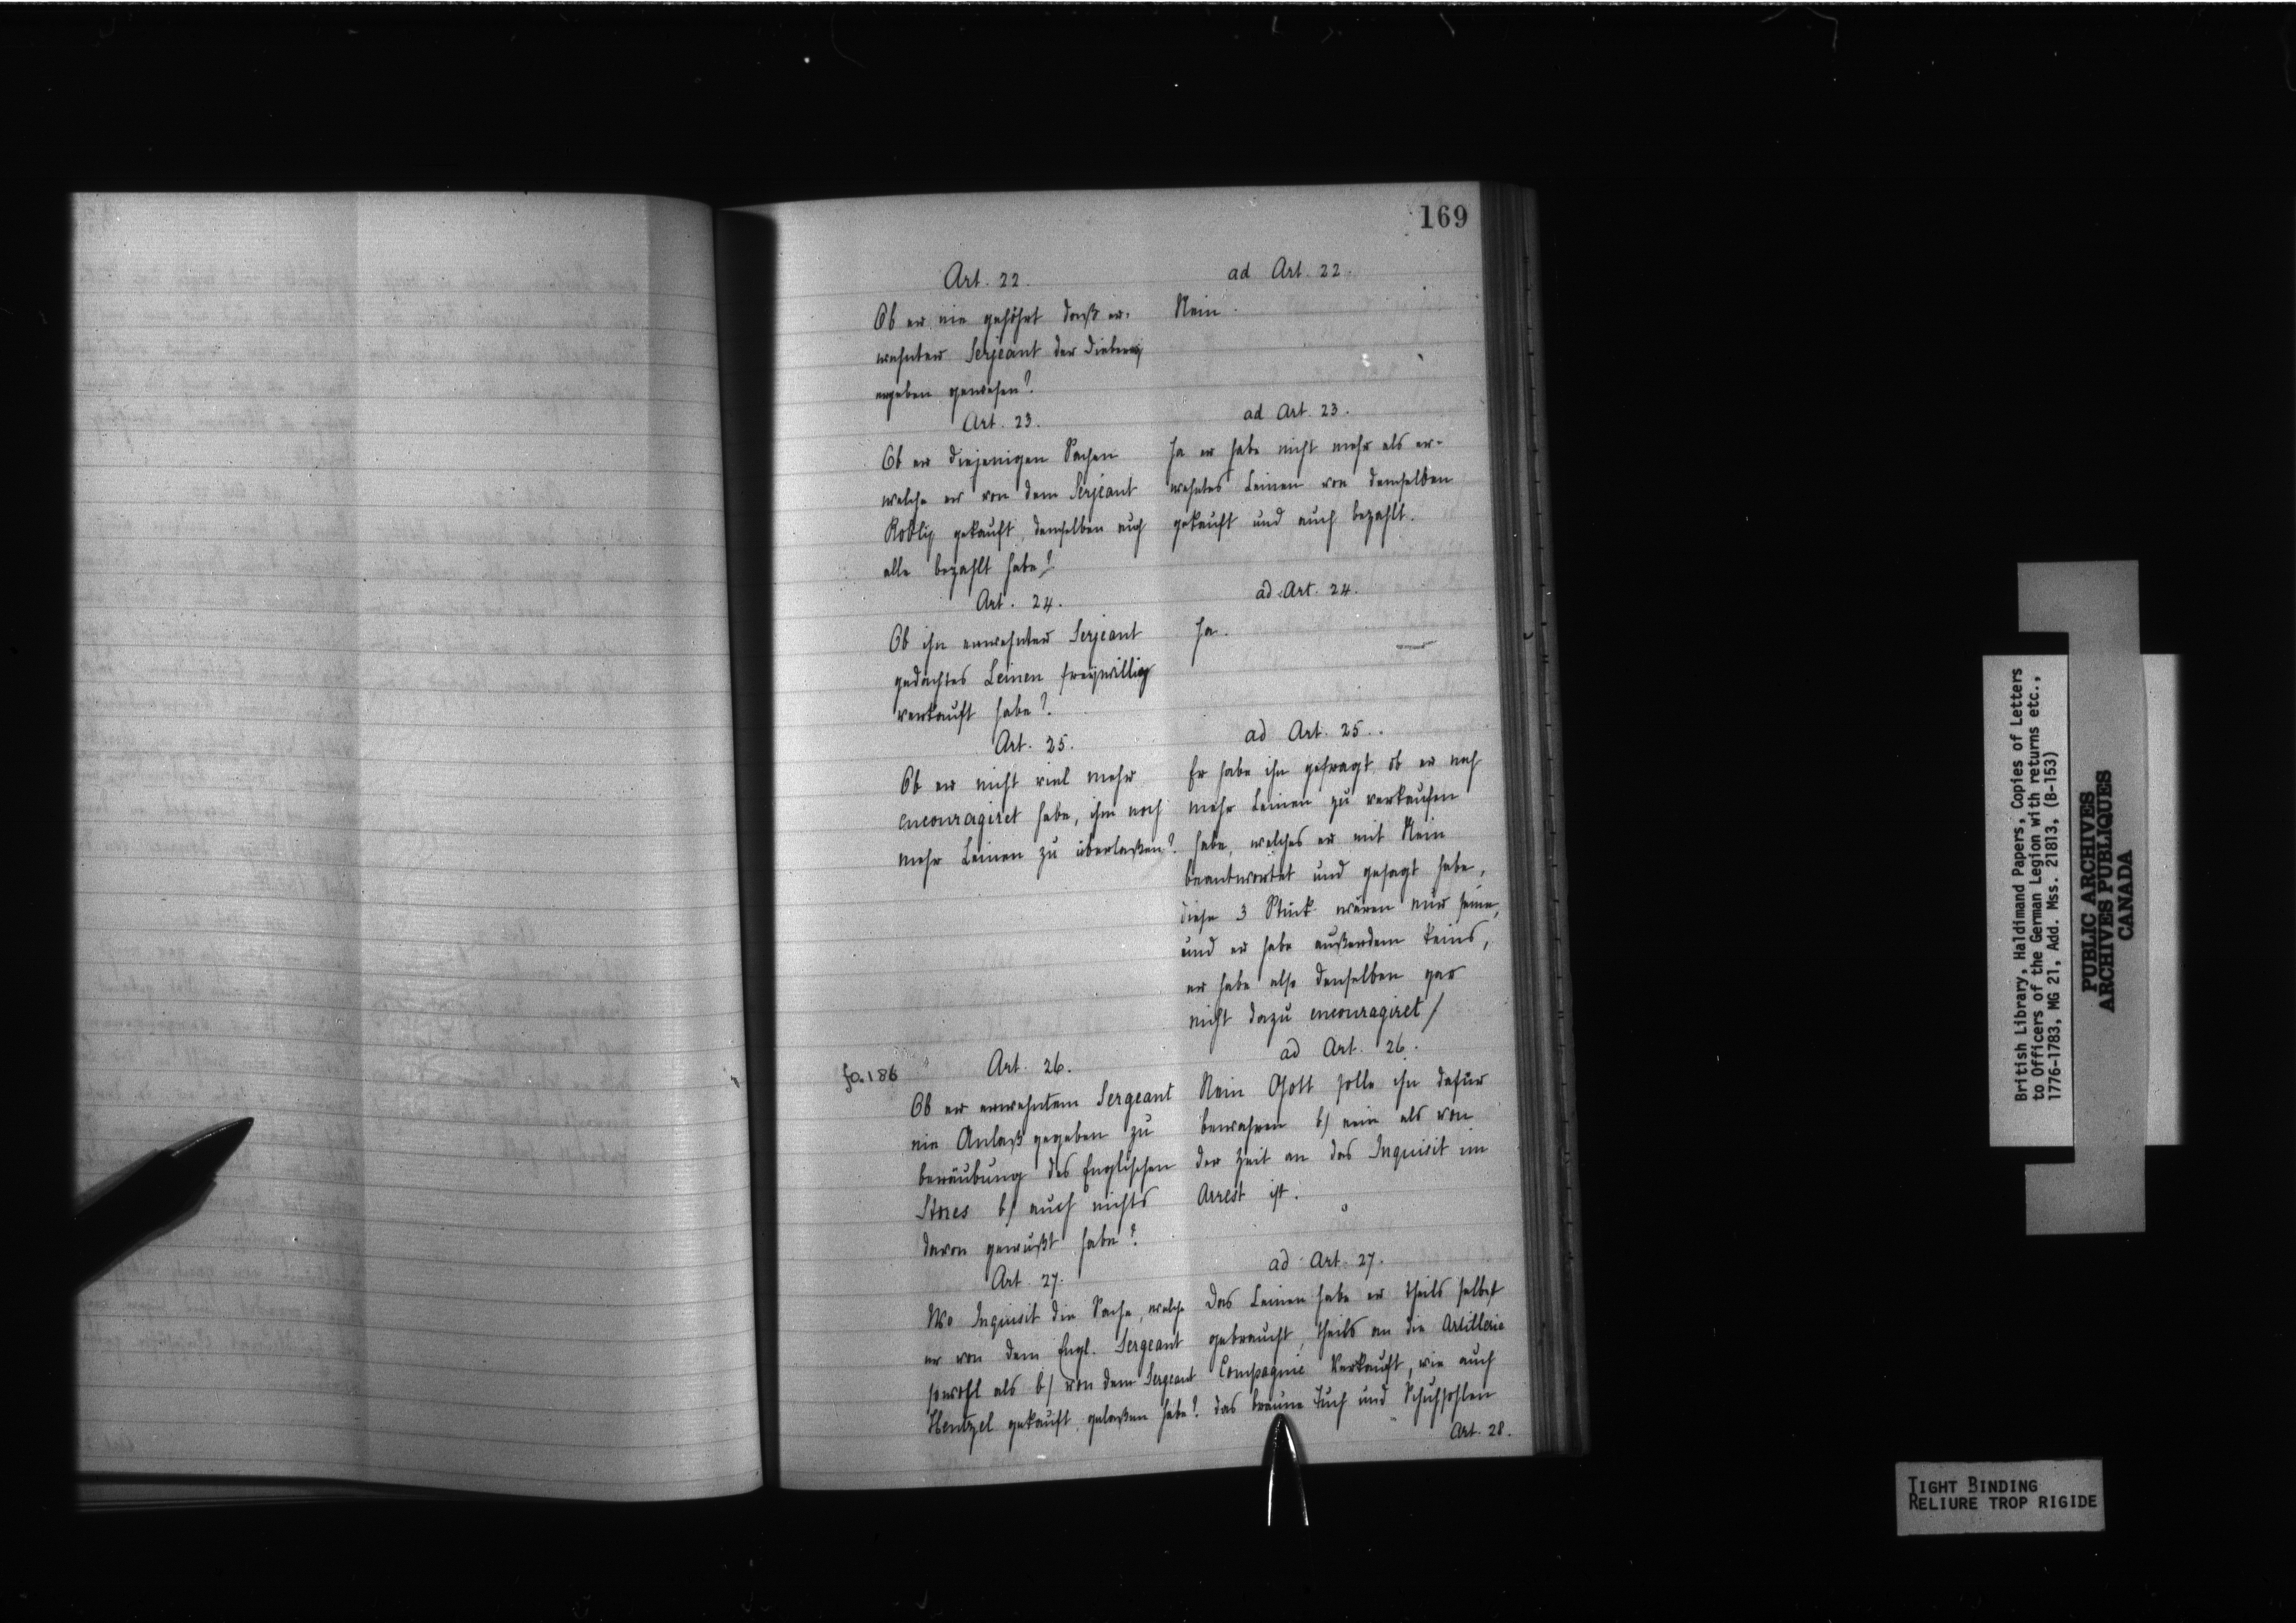 169
Art. 22.
Ob er nie gehöhrt daß er-
wehnter Serjeant der Dieberey
ergeben gewesen?
ad Art. 22.
Nein.
Art. 23.
Ob er diejenigen Sachen
welche er von dem Serjeant
gekauft, demselben auch
alle bezahlt habe?
ad Art. 23.
Ja er habe nicht mehr als er-
wehntes Leinen von demselben
gekauft und auch bezahlt.
Art. 24.
Ob ihn erwehnter Serjeant
gedachtes Leinen freywillig
verkauft habe?
ad Art. 24.
Ja.
Art. 25.
Ob er nicht viel mehr
encouragiret habe, ihm noch
mehr Leinen zu überlaßen?
ad Art. 25.
Er habe ihn gefragt, ob er noch
mehr Leinen zu verkaufen
habe, welches er mit Nein
beantwortet und gesagt habe,
diese 3 Stück wären nur seine,
und er habe außerdem keins,
er habe also denselben gar
nicht dazu encouragiret/
fo. 186
Art. 26.
Ob er erwehntem Sergeant
nie Anlaß gegeben zu
beräubung des Englischen
Stores b/ auch nichts
davon gewußt habe?
ad Art. 26.
Nein Gott solle ihn dafür
bewahren b/ nein als von
der Zeit an das Inquisit im
Arrest ist.
Art. 27.
Wo Inquisit die Sache, welche
er von dem Engl. Sergeant
sowohl als b/ von dem Sergeant
Hentzel gekauft, gelaßen habe?
ad Art. 27.
Das Leinen habe er theils selbst
gebraucht, theils an die Artillerie
Compagnie Verkauft, wie auch
das braune Tuch und Schuhsohlen
Art. 28.
British Library, Haldimand Papers, Copies of Letters
to Officers of the German Legion with returns etc.,
1776-1783, MG 21, Add. Mss. 21813, (B-153)
PUBLIC ARCHIVES
ARCHIVES PUBLIQUES
CANADA
TIGHT BINDING
RELIURE TROP RIGIDE